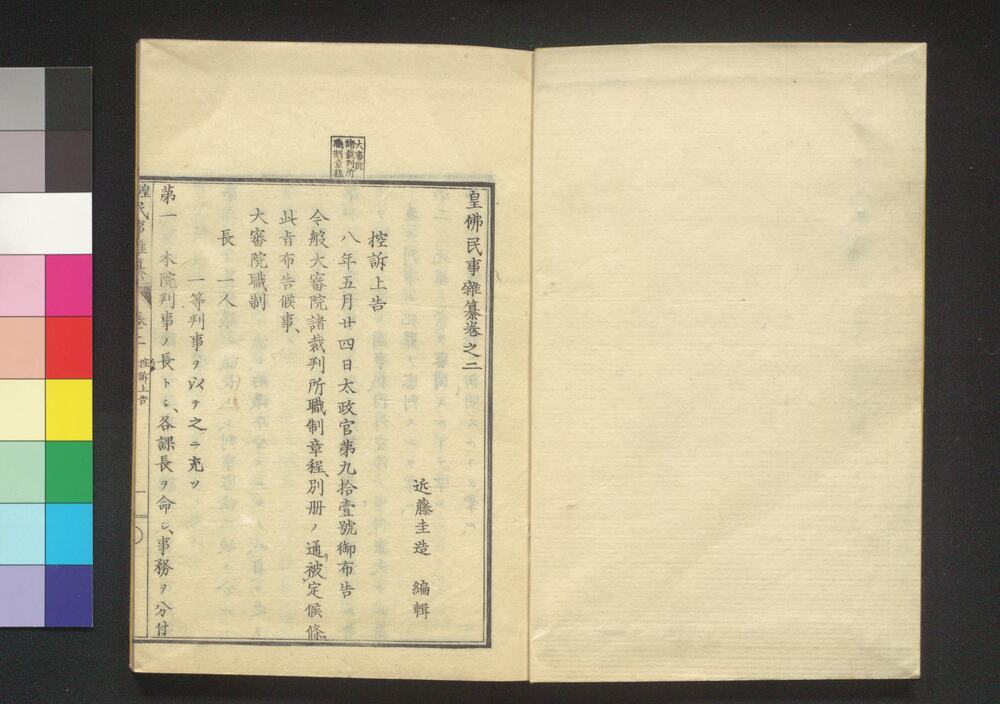 皇佛民事雜纂卷之二
近藤圭造 編輯
控訴上告
八年五月廿四日太政官第九拾壹號御布告
今般大審院諸裁判所職制章程、別册ノ通被定候條、
此旨布告候事、
大審院職制
長 一人
一等判事ヲ以テ之ニ充ツ
第一 本院判事ノ長トシ、各課長ヲ命シ、事務ヲ分付
大審院
諸裁判所
職制章程
民事雜纂
卷二
控訴上告
一